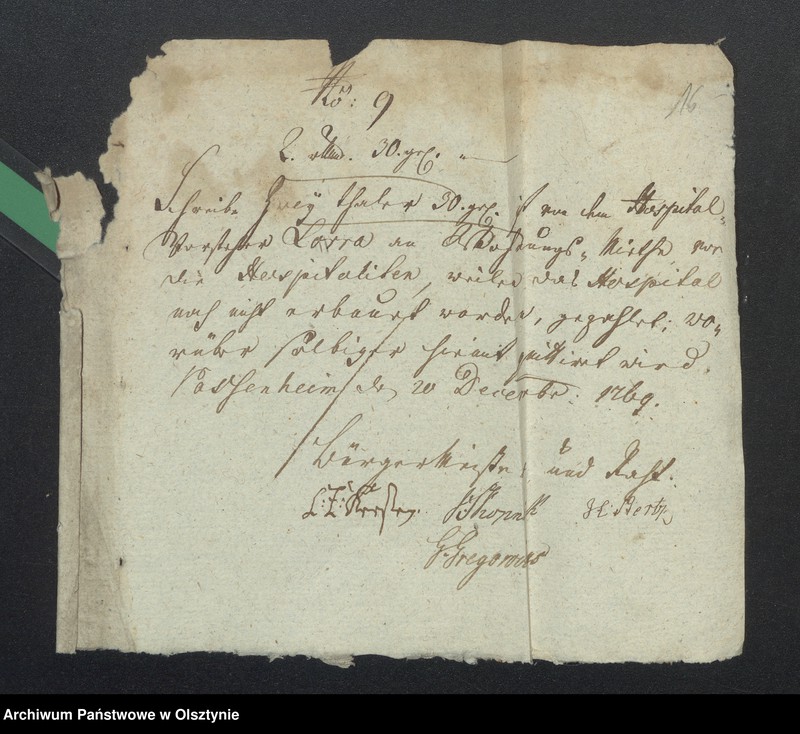 No: 9
16
2. 30. gr.
Schreibe Zwey thaler 30. gr. ist von dem Hospital-
Vorsteher Lorra an Wohnungs-Miethe vor
die Hospitaliten, weilen das Hospital
noch nicht erbauet worden, gezahlet; wo-
rüber selbiger hiemit quittiret wird.
Passenheim den 20 Decembr: 1769.
Bürger Meister und Rath.
Gregorovius
Archiwum Państwowe w Olsztynie